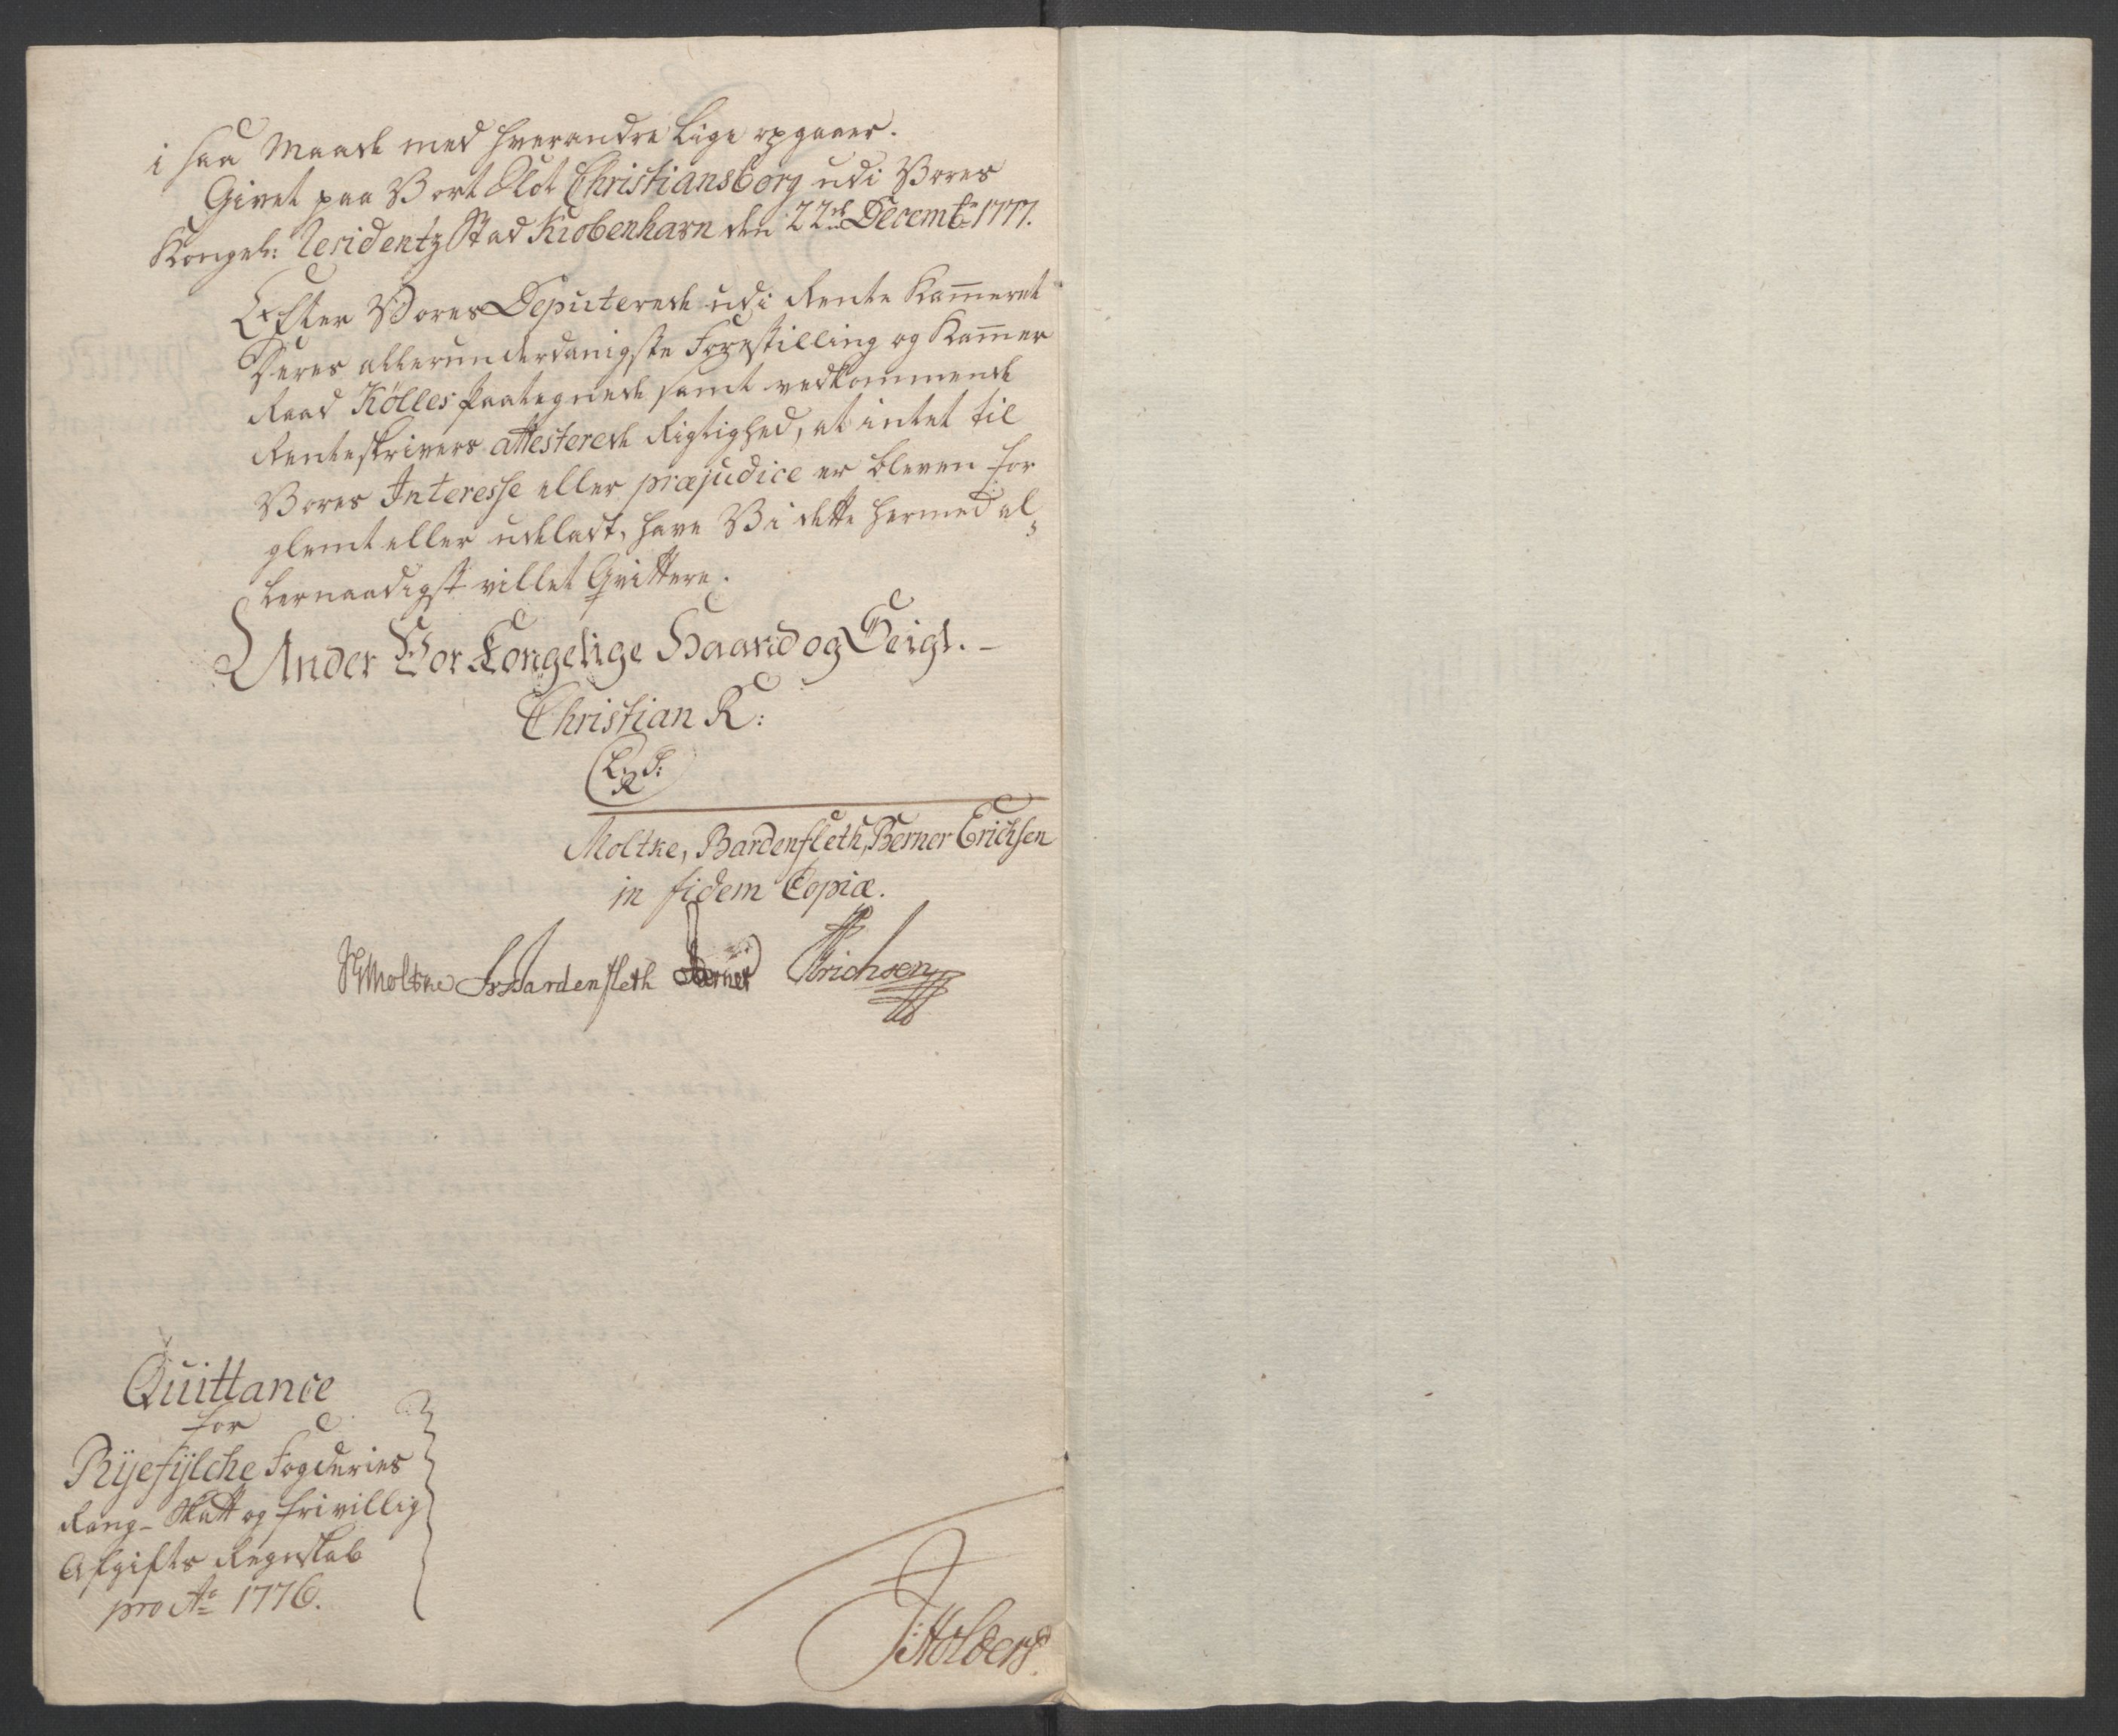 i saa Maade med hverandre lige opgaaer.
Givet paa Vort Slot Christiansborg udi Vores
Kongel: Residentz Stad Kiøbenhavn den 22de Decembr 1777.
Efter Vores Deputerede udi Rente Kammeret
Deres allerunderdanigste Forestilling og Kammer
Raad Kølles Paategnede samt vedkommende
Renteskrivers attesterede Rigtighed, at intet til
Vores Interesse eller præjudice er bleven for
glemt eller udeladt, have Vi dette hermed al
lernaadigst villet Qvittere.
Under Vor Kongelige Haand og Seigl. -
Christian R:
L. S:
R
Moltke, Bardenfleth, Berner Erichsen
in fidem Copiæ.
Moltke Bardenfleth Berner Erichsen
Quittance
for
Ryefylche Fogderies
Rang-Skatt og frivillig
Afgifts Regnskab
pro Ao 1776.